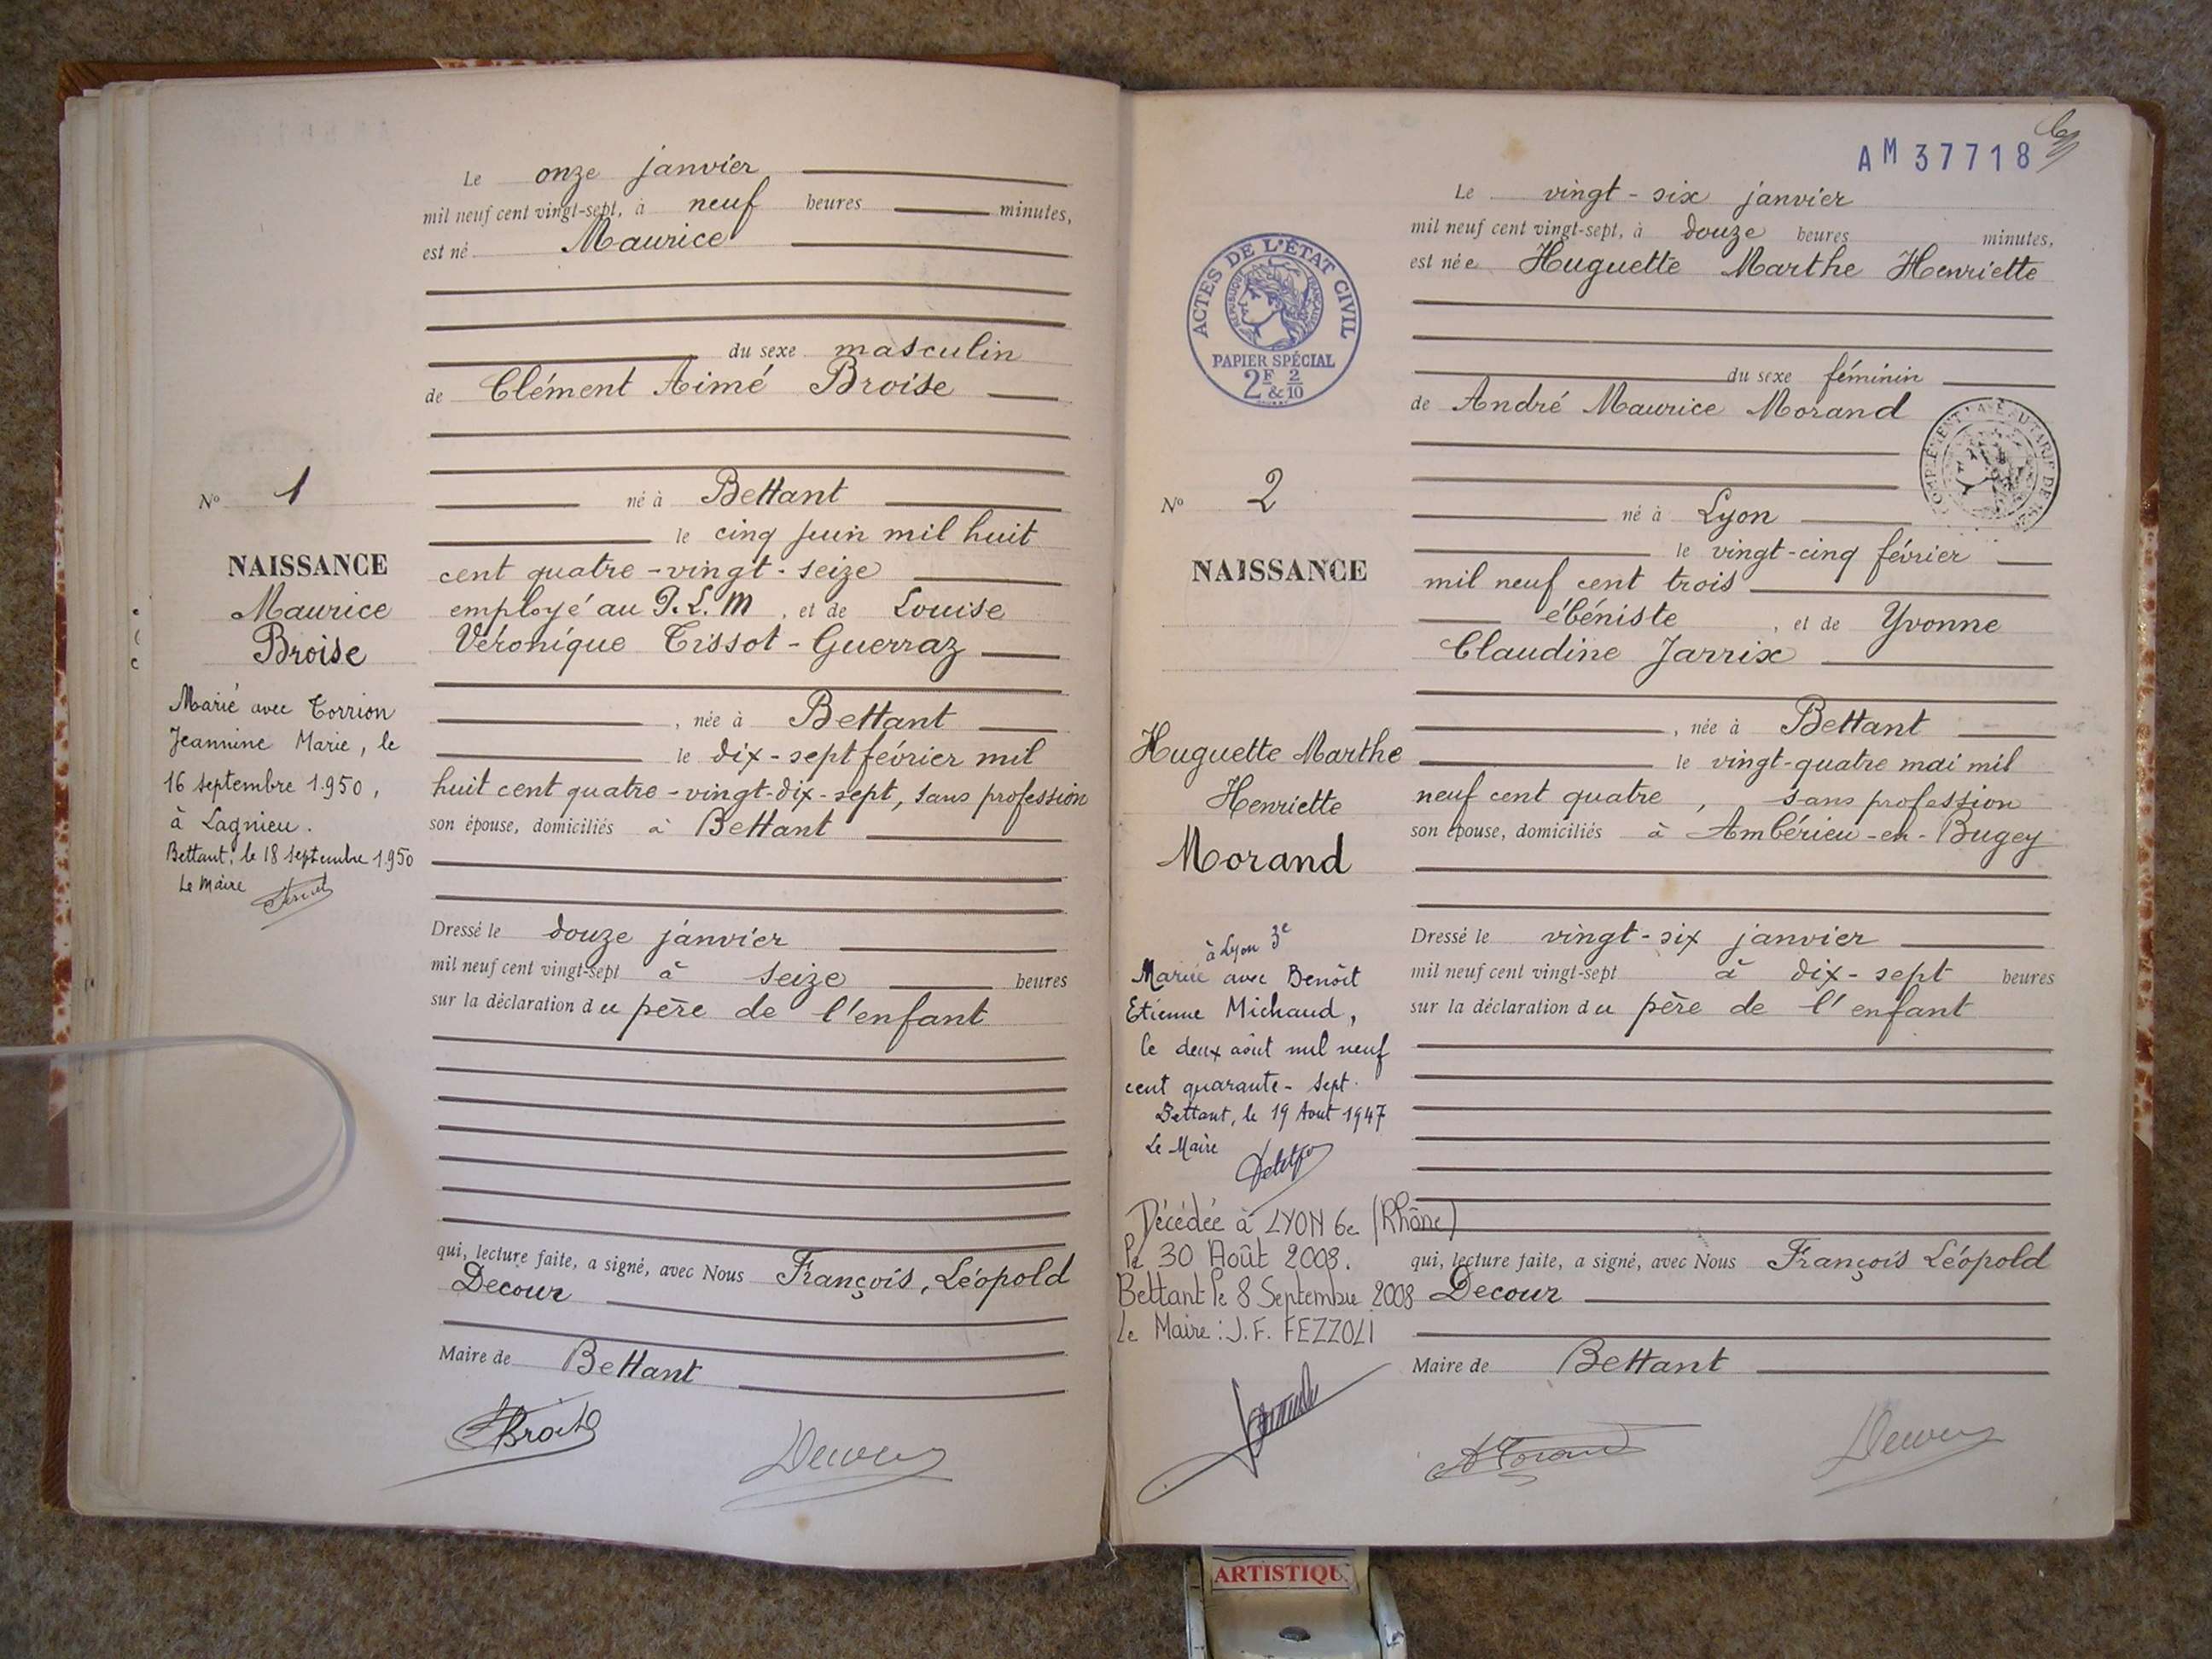 Le onze janvier
mil neuf cent vingt-sept, à neuf heures minutes,
est né Maurice
du sexe masculin
de Clément Aimé Broise
né à Bettant
le cinq juin mil huit
cent quatre-vingt-seize
employé au P.L.M, et de Louise
Véronique Tissot-Guerraz
, née à Bettant
le dix-sept février mil
huit cent quatre-vingt-dix-sept, sans profession
son épouse, domiciliés à Bettant
Dressé le douze janvier
mil neuf cent vingt-sept à seize heures
sur la déclaration du père de l'enfant
qui, lecture faite, a signé, avec Nous François, Léopold
Decour
Maire de Bettant
Broise
Decour
No 1
NAISSANCE
Maurice
Broise
Marié avec Torrion
Jeannine Marie, le
16 septembre 1950,
à Lagnieu.
Bettant, le 18 septembre 1950
Le Maire
AM 37718
ACTES DE L'ÉTAT CIVIL
RÉPUBLIQUE FRANÇAISE
PAPIER SPÉCIAL
2F 2
& 10
No 2
NAISSANCE
Huguette Marthe
Henriette
Morand
à Lyon 3e
Mariée avec Benoît
Etienne Michaud,
le deux août mil neuf
cent quarante-sept.
Bettant, le 19 Aout 1947
Le Maire
Décédée à LYON 6e (Rhône)
le 30 Août 2008.
Bettant le 8 Septembre 2008
Le Maire : J.F. FEZZOLI
Le vingt-six janvier
mil neuf cent vingt-sept, à douze heures minutes,
est née Huguette Marthe Henriette
du sexe féminin
de André Maurice Morand
né à Lyon
le vingt-cinq février
mil neuf cent trois
ébéniste, et de Yvonne
Claudine Jarrix
, née à Bettant
le vingt-quatre mai mil
neuf cent quatre, sans profession
son épouse, domiciliés à Ambérieu-en-Bugey
Dressé le vingt-six janvier
mil neuf cent vingt-sept à dix-sept heures
sur la déclaration du père de l'enfant
qui, lecture faite, a signé, avec Nous François Léopold
Decour
Maire de Bettant
AMorand
Decour
ARTISTIQU